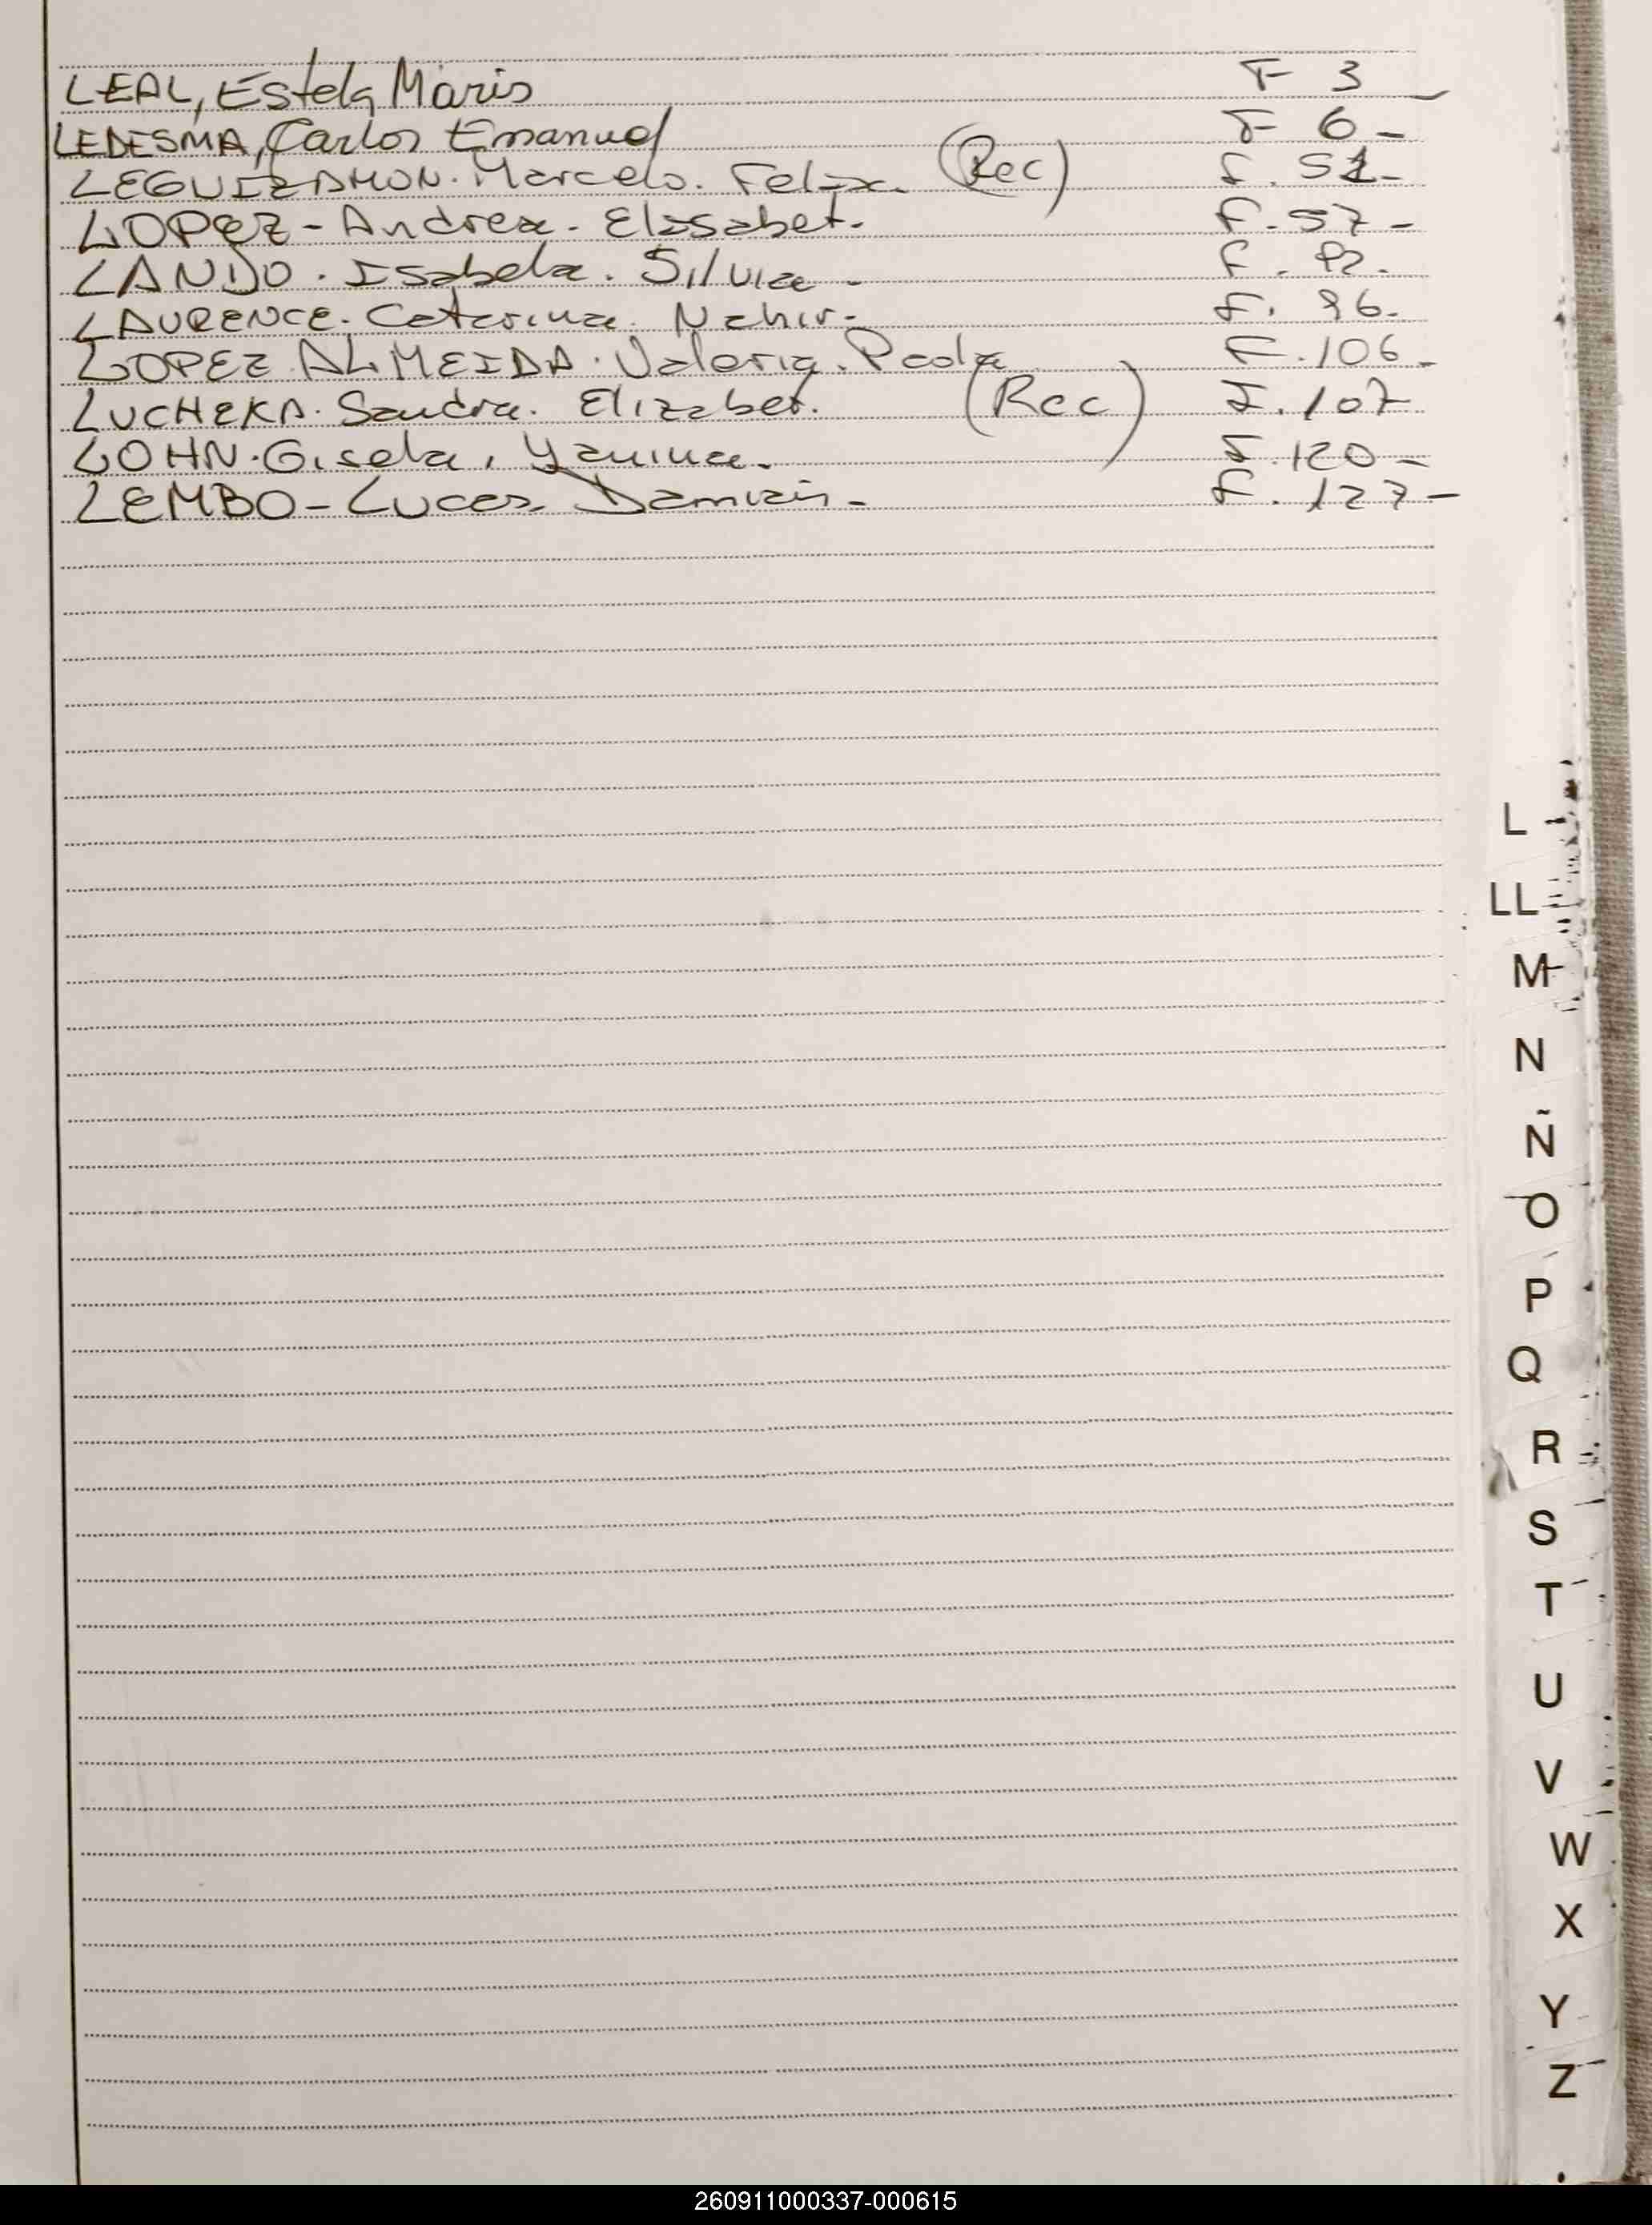 LEAL, Estela Maris F 3
LEDESMA, Carlos Emanuel F 6 -
LEGUIZAMON. Marcelo. Felix. (Rec) F. 51-
LOPEZ - Andrea. Elisabet. F. 57 -
LANDO. Isabela. Silvia - F. 82.
LAURENCE. Caterina. Nahir. F. 96.
LOPEZ ALMEIDA. Valeria. Paola F. 106 -
LUCHEKA. Sandra. Elizabet. (Rec) F. 107
LOHN. Gisela, Yanina. F. 120 -
LEMBO - Lucas Damián - F. 127 -
L
LL
M
N
Ñ
O
P
Q
R
S
T
U
V
W
X
Y
Z
260911000337-000615